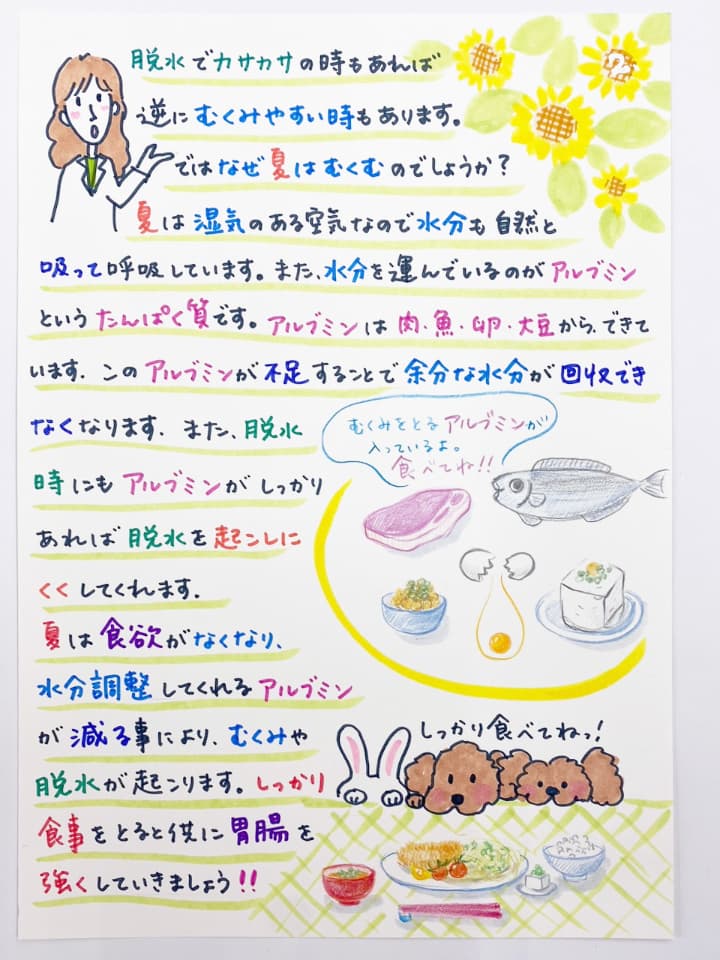 脱水でカサカサの時もあれば
逆にむくみやすい時もあります。
ではなぜ夏はむくむのでしょうか？
夏は湿気のある空気なので水分も自然と
吸って呼吸しています。また、水分を運んでいるのがアルブミン
というたんぱく質です。アルブミンは肉・魚・卵・大豆から、できて
います。このアルブミンが不足することで余分な水分が回収でき
なくなります。また、脱水
時にもアルブミンがしっかり
あれば脱水を起こしに
くくしてくれます。
夏は食欲がなくなり、
水分調整してくれるアルブミン
が減る事により、むくみや
脱水が起こります。しっかり
食事をとると供に胃腸を
強くしていきましょう!!
むくみをとるアルブミンが
入っているよ。
食べてね!!
しっかり食べてねっ!